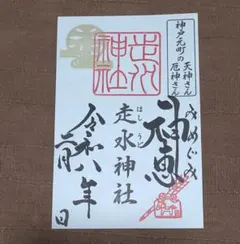 神戸元町の
天神さん
厄神さん
神恵
みめぐみ
走水神社
はしうど
走水
神社
令和八年
二月
日